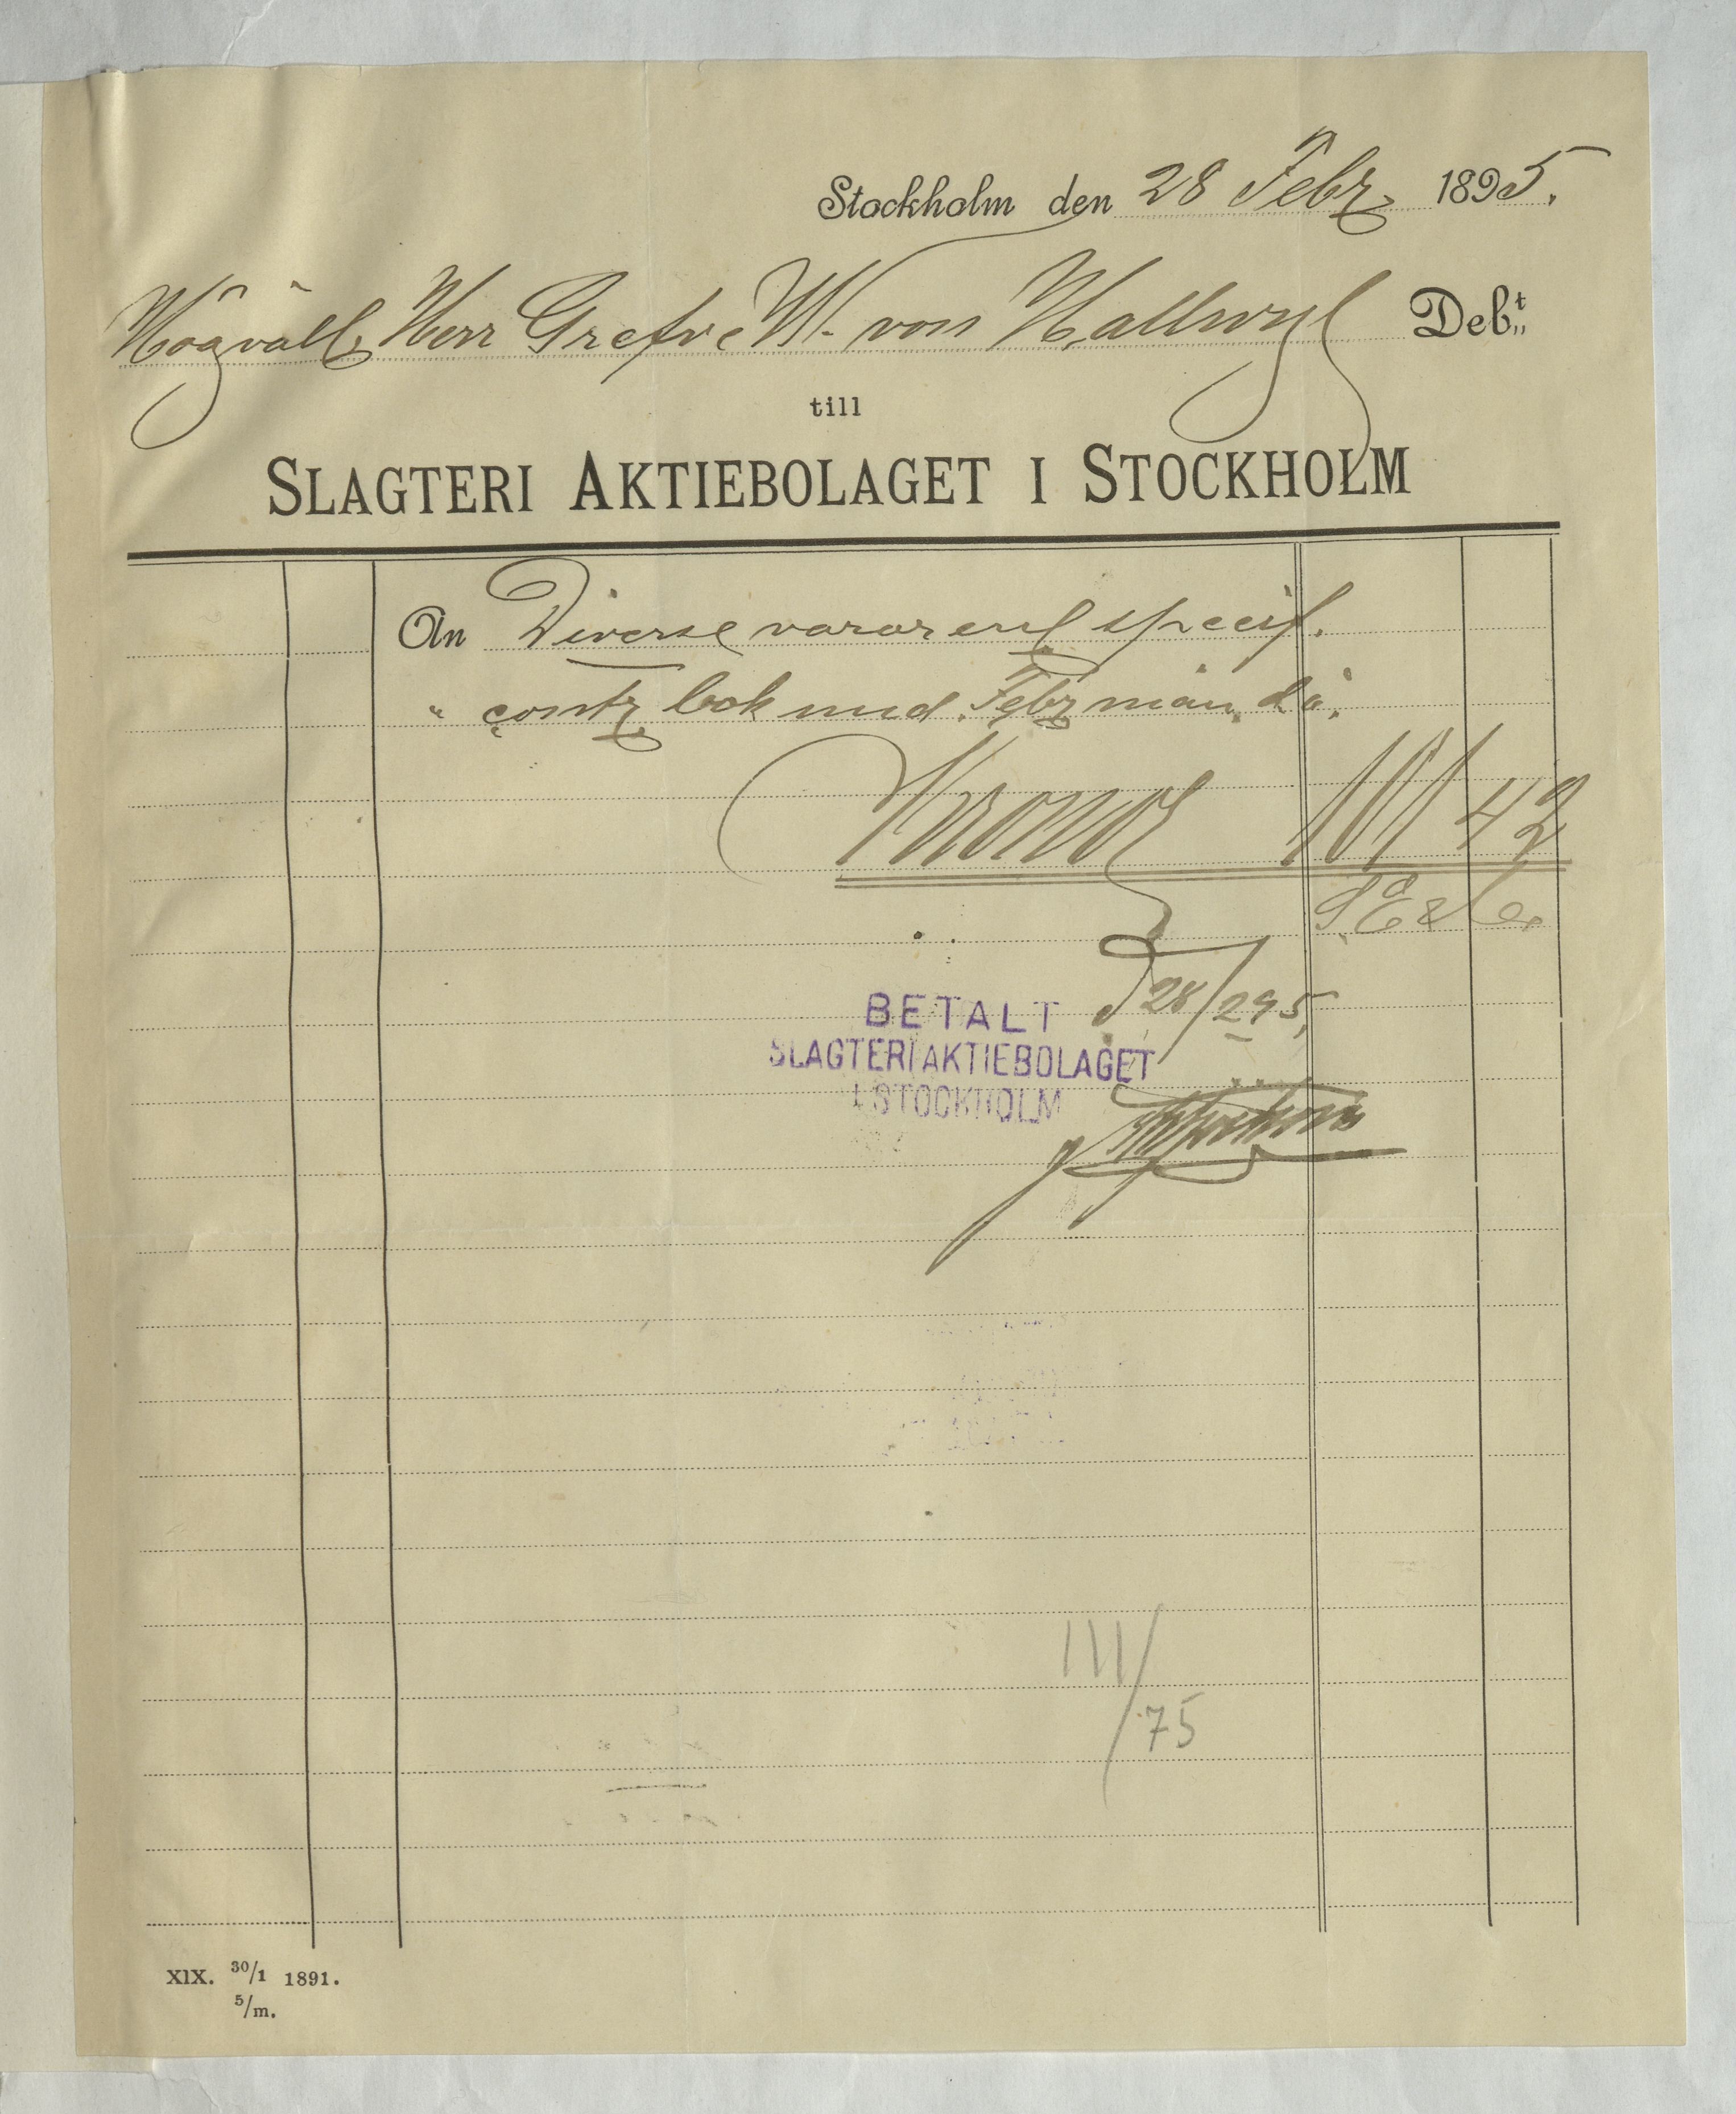 Stockholm den 28 Febr. 1895.
Högvälb. Herr Grefve W. von Hallwyl Debt.
till
SLAGTERI AKTIEBOLAGET I STOCKHOLM
An Diverse varor enl specif.
" contr bok med Febr mån. d å.
Kronor 101 42
S. E. & O.
BETALT d 28/2 95,
SLAGTERIAKTIEBOLAGET
I STOCKHOLM
111/75
XIX. 30/1 1891.
5/m.